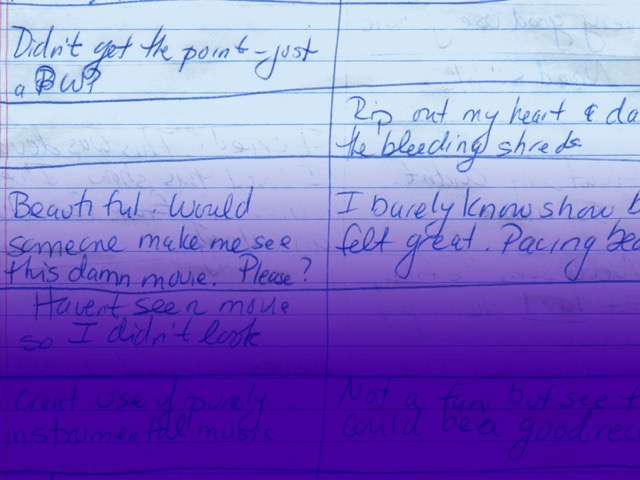 Didn't get the point - just
a BWP
Rip out my heart & da
the bleeding shreds.
Beautiful. Would
someone make me see
this damn movie. Please?
I barely know show b
felt great. Pacing bea
Haven't seen movie
so I didn't look
Great use of purely
instrumental music
Not a fan but see t
could be a good rec